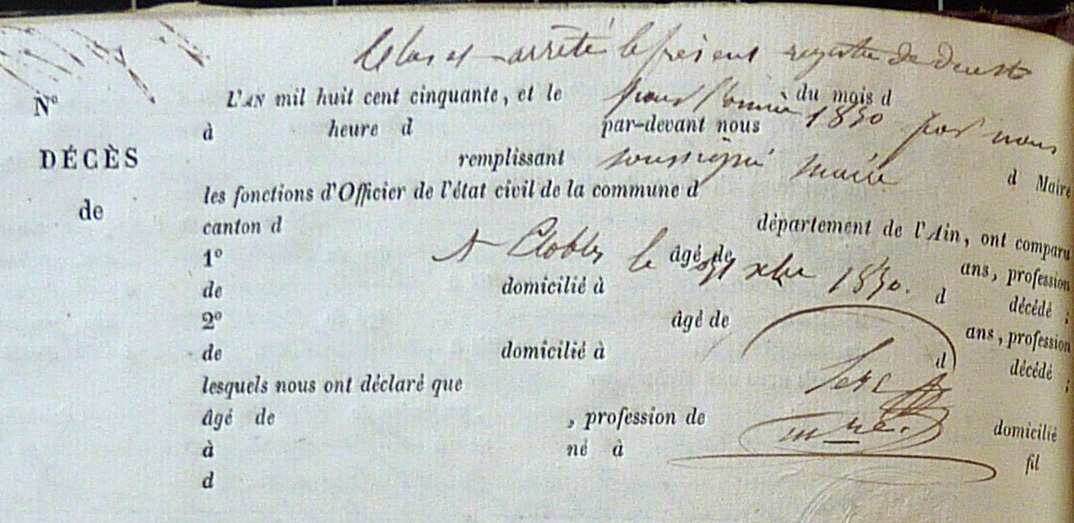 Clos et arrêté le présent registre de décès
N° L'AN mil huit cent cinquante, et le pour l'année du mois d
à heure d par-devant nous 1850 par nous
DÉCÈS remplissant soussigné maire d Maire
de les fonctions d'Officier de l'état civil de la commune d
canton d département de l'Ain, ont comparu
1° A le âgé de 31 xbre 1850. ans, profession
de domicilié à d décédé ;
2° âgé de ans, profession
de domicilié à d décédé ;
lesquels nous ont déclaré que
âgé de , profession de domicilié
à né à fil
d